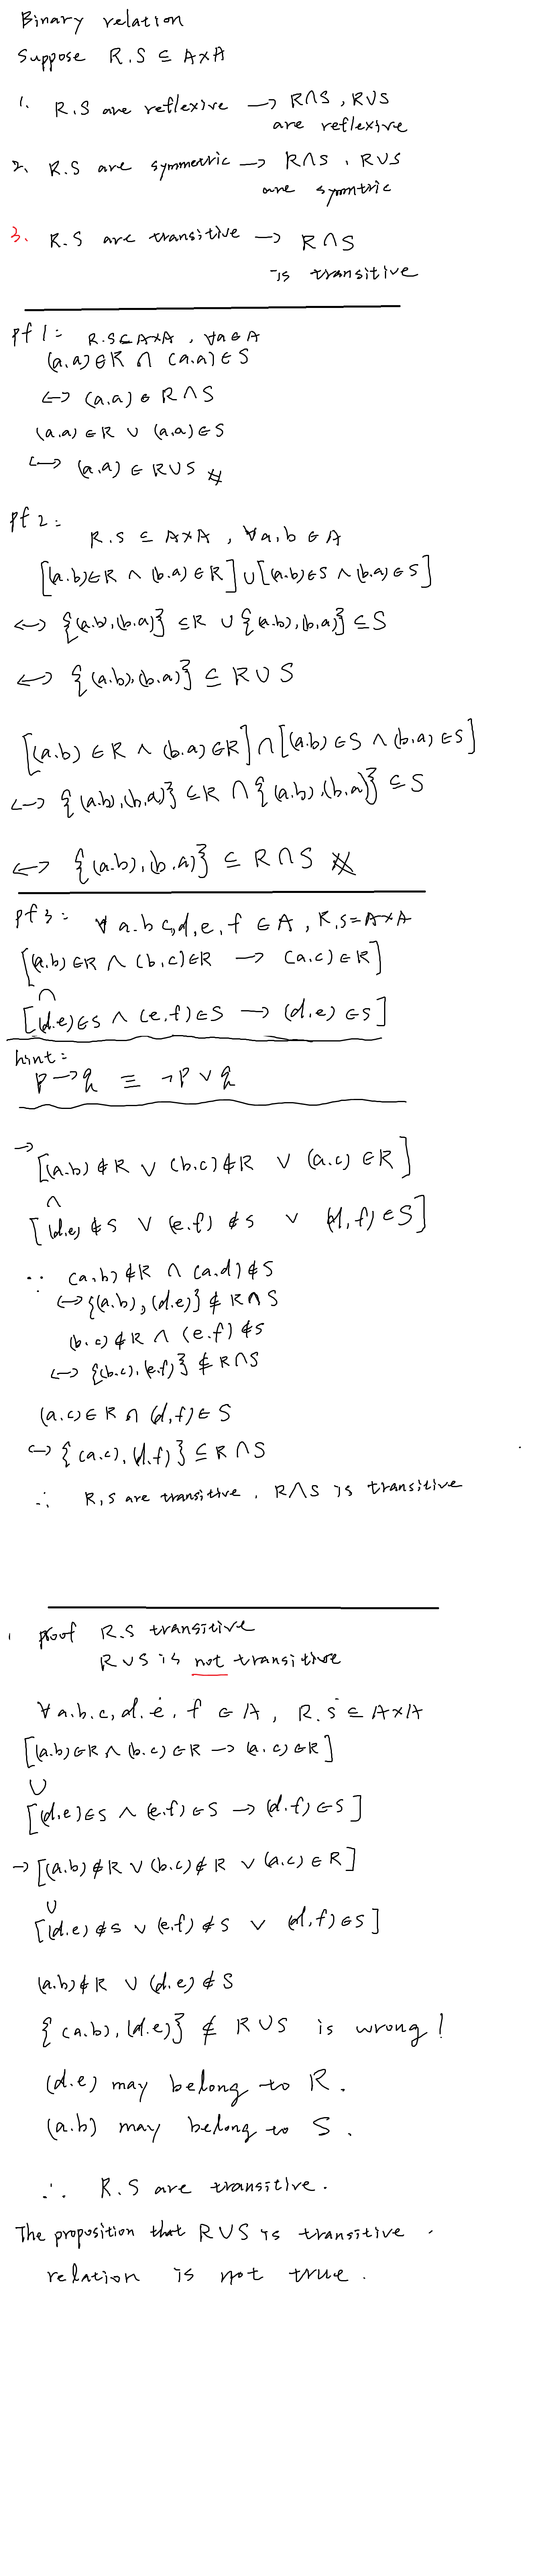 Binary relation
Suppose R.S ⊆ A×A
1. R.S are reflexive → R∩S, R∪S
are reflexive
2. R.S are symmetric → R∩S, R∪S
are symntric
3. R.S are transitive → R∩S
is transitive
pf 1: R.S⊆A×A, ∀a∈A
(a.a)∈R ∩ (a.a)∈S
↔ (a.a) ∈ R∩S
(a.a)∈R ∪ (a.a)∈S
↔ (a.a) ∈ R∪S #
pf 2:
R.S ⊆ A×A, ∀a,b ∈A
[(a.b)∈R ∧ (b.a)∈R]∪[(a.b)∈S ∧ (b.a)∈S]
↔ {(a.b),(b.a)} ⊆R ∪ {(a.b),(b.a)} ⊆S
↔ {(a.b),(b.a)} ⊆ R∪S
[(a.b) ∈R ∧ (b.a)∈R]∩[(a.b)∈S ∧ (b.a)∈S]
↔ {(a.b),(b.a)} ⊆R ∩ {(a.b),(b.a)} ⊆S
↔ {(a.b),(b.a)} ⊆ R∩S #
pf 3: ∀ a.b c,d,e,f ∈A, R.S=A×A
[(a.b)∈R ∧ (b,c)∈R → (a,c)∈R]
∩
[(d.e)∈S ∧ (e,f)∈S → (d,e)∈S]
hint:
P→q ≡ ¬P∨q
→ [(a.b)∉R ∨ (b.c)∉R ∨ (a.c)∈R]
∧
[(d.e)∉S ∨ (e.f)∉S ∨ (d,f)∈S]
∵ (a.b)∉R ∩ (a.d)∉S
↔{(a.b),(d.e)} ⊄ R∩S
(b.c)∉R ∧ (e.f)∉S
↔ {(b.c),(e.f)} ⊄ R∩S
(a.c)∈R ∩ (d,f)∈S
↔ {(a.c),(d.f)} ⊆R∩S
∴ R,S are transitive, R∩S is transitive
proof R.S transitive
R∪S is not transitive
∀a.b.c,d.e,f ∈A, R.S ⊆ A×A
[(a.b)∈R ∧ (b.c)∈R → (a.c)∈R]
∪
[(d.e)∈S ∧ (e.f)∈S → (d.f)∈S]
→ [(a.b)∉R ∨ (b.c)∉R ∨ (a.c)∈R]
∪
[(d.e)∉S ∨ (e.f)∉S ∨ (d.f)∈S]
(a.b)∉R ∪ (d.e)∉S
{(a.b),(d.e)} ⊄ R∪S is wrong!
(d.e) may belong to R.
(a.b) may belong to S.
∴ R.S are transitive.
The proposition that R∪S is transitive
relation is not true.